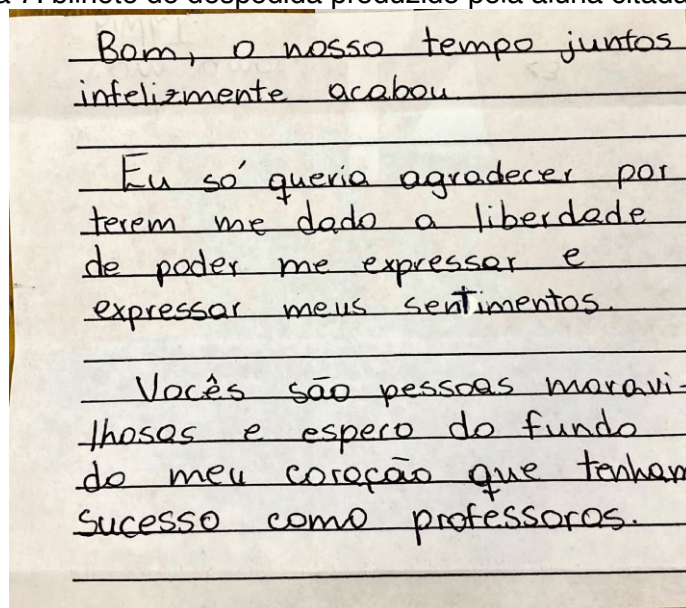 7. bilhete de despedida produzido pela aluna citada
Bom, o nosso tempo juntos
infelizmente acabou
Eu só queria agradecer por
terem me dado a liberdade
de poder me expressar e
expressar meus sentimentos.
Vocês são pessoas maravi-
lhosas e espero do fundo
do meu coração que tenham
sucesso como professoras.